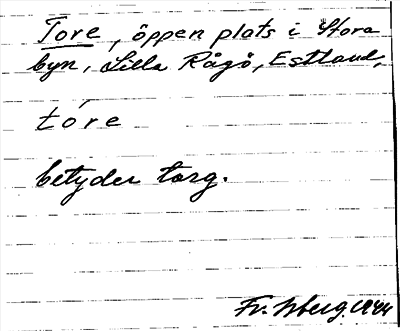 Tore, öppen plats i Stora
byn, Lilla Rågö, Estland,
tóre
betyder torg.
Fr. 1944